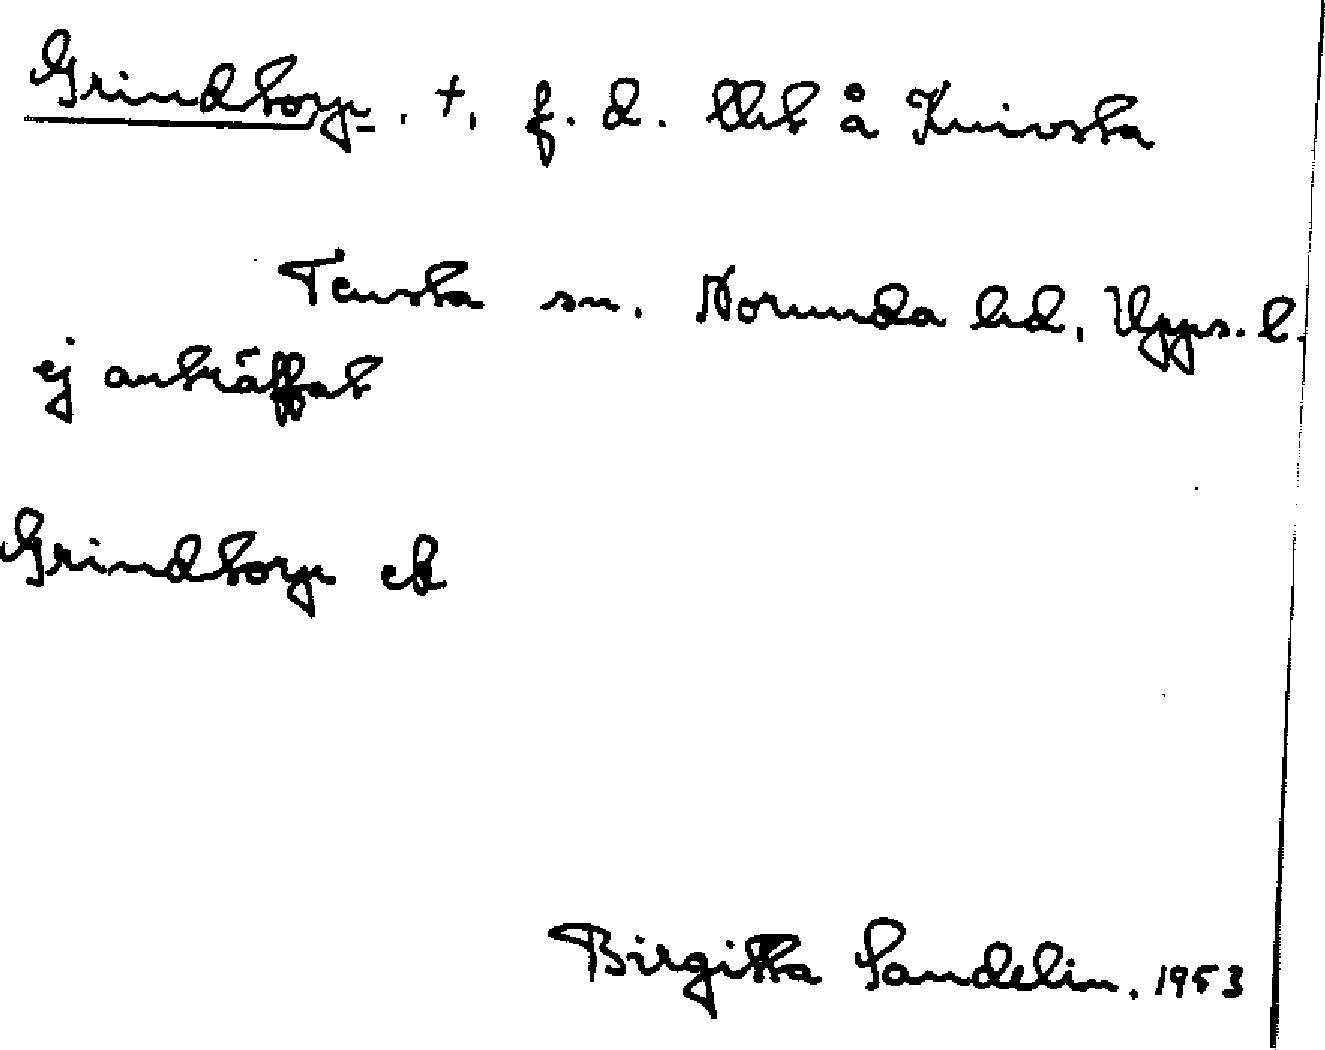 Grindtorp. †. f. d. lht å Knivsta
Tensta sn. Norunda hd. Upps. l.
ej anträffat
Grindtorp ek
Birgitta Sandelin. 1953